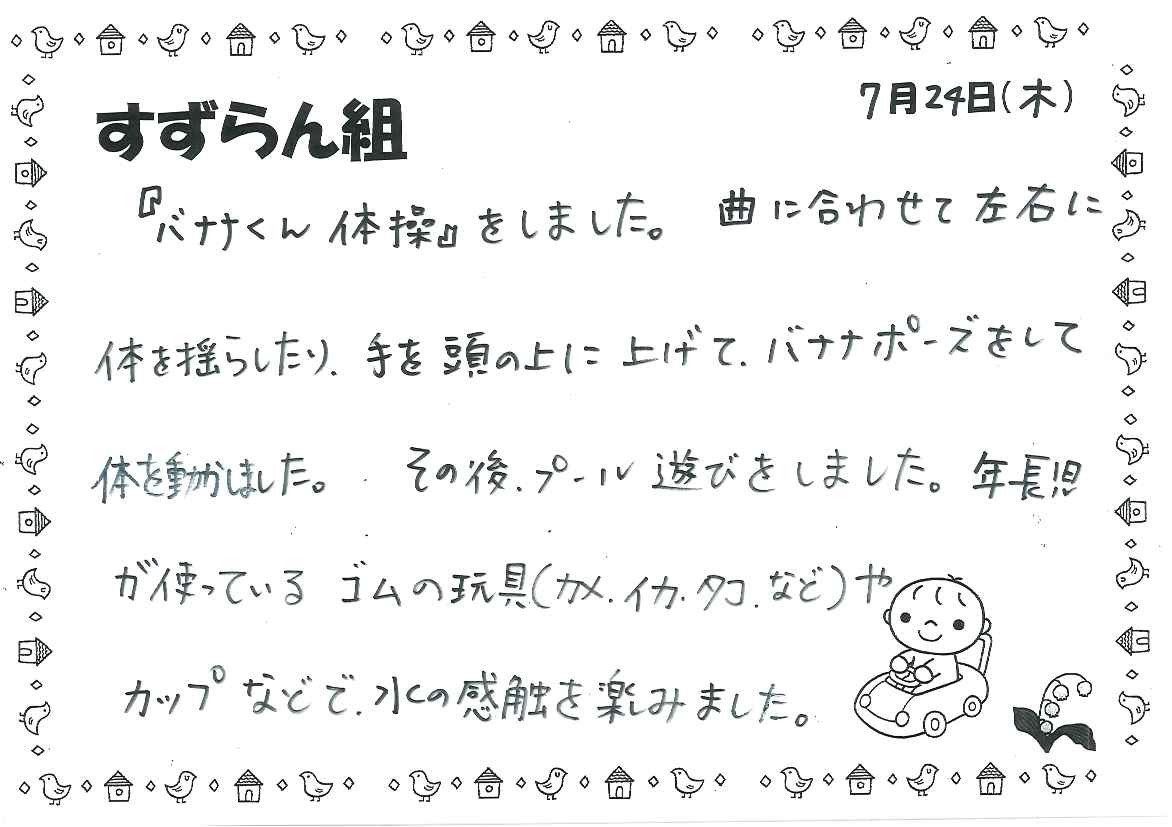 7月24日(木)
すずらん組
『バナナくん体操』をしました。 曲に合わせて左右に
体を揺らしたり、手を頭の上に上げて、バナナポーズをして
体を動かしました。 その後、プール遊びをしました。年長児
が使っている ゴムの玩具(カメ、イカ、タコ、など)や
カップなどで、水の感触を楽しみました。